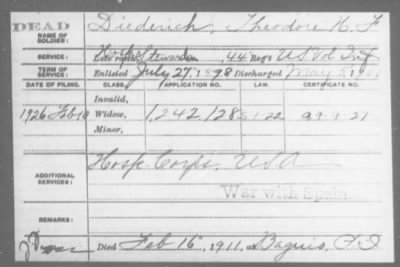 DEAD
NAME OF SOLDIER:
Diederich, Theodore H. F
SERVICE:
Steward 44 Reg't US Vol Inf
TERM OF SERVICE:
Enlisted July 27, 1898 Discharged May 5
DATE OF FILING.
CLASS.
APPLICATION NO.
LAW.
CERTIFICATE NO.
Invalid,
1926 Feb 10
Widow,
1242128
Minor,
ADDITIONAL SERVICES:
Hosp. Corps, USA
War with Spain.
REMARKS:
Died Feb 16, 1911, at Baguio, P. I.